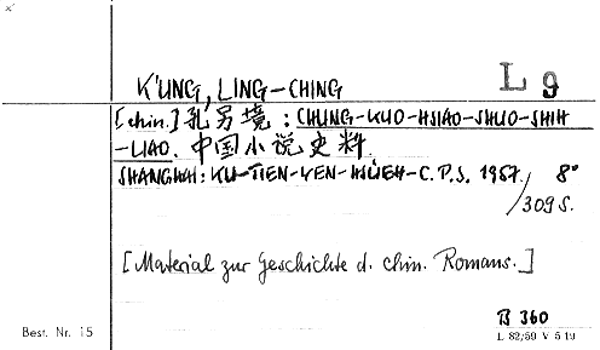 K'UNG, LING-CHING
L 9
[chin.] 孔另境: CHUNG-KUO-HSIAO-SHUO-SHIH
-LIAO. 中国小说史料.
SHANGHAI: KU-TIEN-WEN-HSÜEH-C.P.S. 1957. 8°
/309 S.
[Material zur Geschichte d. chin. Romans.]
B 360
Best. Nr. 15
L 82/59 V 5 19